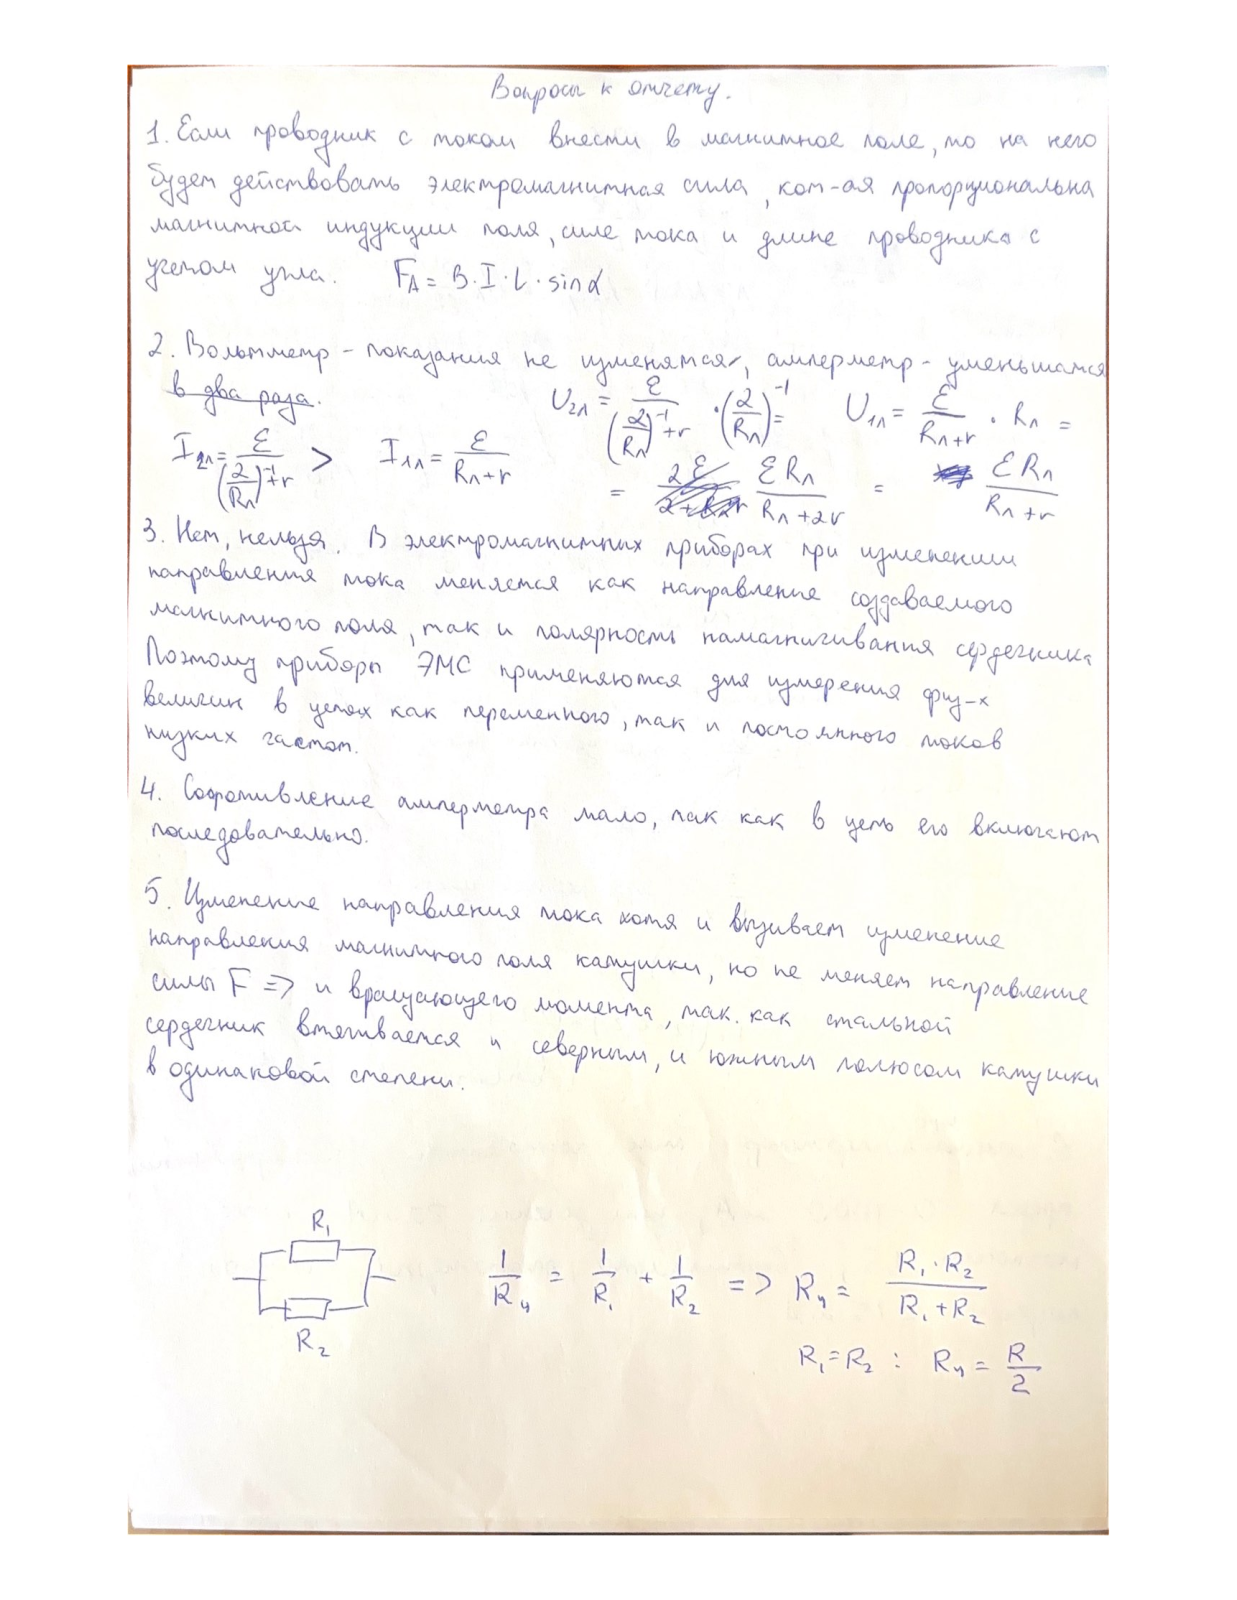 Вопросы к отчету.
1. Если проводник с током внести в магнитное поле, то на него
будет действовать электромагнитная сила, кот-ая пропорциональна
магнитной индукции поля, силе тока и длине проводника с
учетом угла. F_A = B · I · L · sinα
2. Вольтметр - показания не изменятся, амперметр - уменьшатся
в два раза. U_2л = ℰ/((2/Rл)^-1 + r) · (2/Rл)^-1 = U_1л = ℰ/(Rл+r) · Rл =
I_2л = ℰ/((2/Rл)^-1 + r) > I_1л = ℰ/(Rл+r)
= ℰRл/(Rл+2r) = ℰRл/(Rл+r)
3. Нет, нельзя. В электромагнитных приборах при изменении
направления тока меняется как направление создаваемого
магнитного поля, так и полярность намагничивания сердечника
Поэтому приборы ЭМС применяются для измерения физ-х
величин в цепях как переменного, так и постоянного токов
низких частот.
4. Сопротивление амперметра мало, так как в цепь его включают
последовательно.
5. Изменение направления тока хотя и вызывает изменение
направления магнитного поля катушки, но не меняет направление
силы F => и вращающего момента, так. как стальной
сердечник втягивается и северным, и южным полюсом катушки
в одинаковой степени.
R₁
1/Rц = 1/R₁ + 1/R₂ => Rц = R₁·R₂/(R₁+R₂)
R₂
R₁=R₂ : Rц = R/2